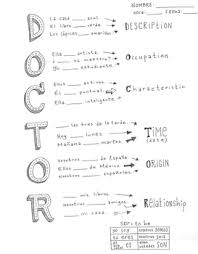 NOMBRE:
HORA: FECHA:
D
La casa ____ azul.
El libro ____ verde.
Los lápices ____ amarillos.
DESCRIPTION
O
Ella ____ artista
mecánico.
Yo ____ estudiante.
OCCUPATION
C
Ellos ____ activos
El ____ puntual
Ella ____ inteligente.
Characteristic
T
las tres de la tarde.
Hoy ____ lunes
Mañana ____ martes.
TIME
(DATE)
O
Nosotros ____ de España
Ellas ____ de México
Nosotros ____ españoles.
ORIGIN
R
mis libros.
amigos
mi casa.
Relationship
ser: to be
yo soy nosotros somos
tú eres
él ella es ellos ellas son